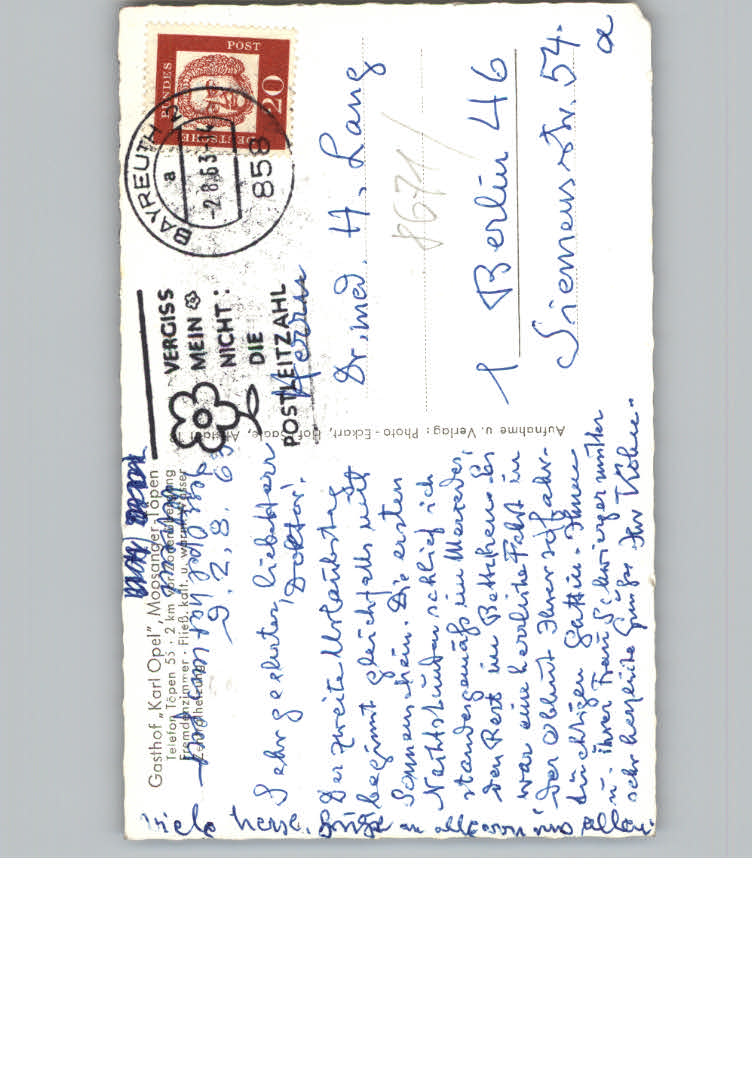 Gasthof „Karl Opel", Moosanger/Töpen
Telefon Töpen 55 · 2 km vor Zonenübergang
Fremdenzimmer · Fließ. kalt. u. warm. Wasser
Zentralheizung
D. 2.8.63
Sehr geehrter, liebster
Doktor!
Der zweite Urlaubstag
beginnt gleichfalls mit
Sonnenschein. Die ersten
Nachtstunden schlief ich
standesgemäß im Mercedes,
den Rest im Bettchen. Es
war eine herrliche Fahrt in
der Obhut Ihrer so fahr-
tüchtigen Gattin. Ihnen
u. Ihrer Frau Schwiegermutter
sehr herzliche Grüße Ihr
Viele herzl. Grüße an alle von uns allen.
Aufnahme u. Verlag: Photo-Eckart, Hof/Saale, Altstadt
DEUTSCHE BUNDESPOST
20
BAYREUTH 2
a
-2.8.63
858
VERGISS
MEIN
NICHT:
DIE
POSTLEITZAHL
Herrn
Dr. med. H. Lang
8671/
1 Berlin 46
Siemensstr. 54.
a